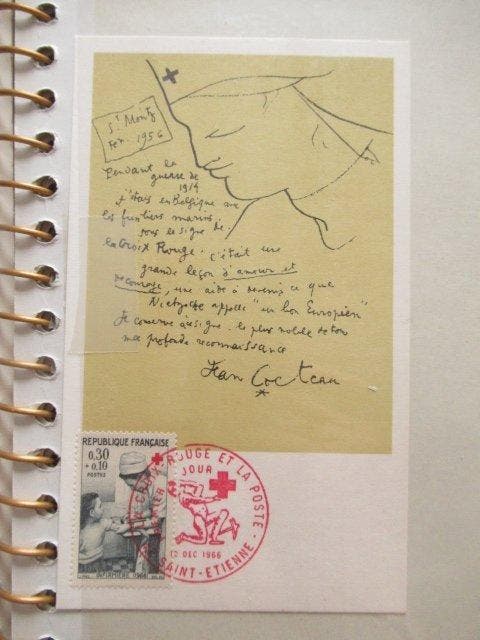 St Moritz
Fev. 1956
Pendant la
guerre de
1914
j'étais en Belgique avec
les fusiliers marins.
sous le signe de
la Croix Rouge. c'était une
grande leçon d'amour et
de courage, une aide à devenir ce que
Nietzsche appelle "un bon Européen"
Je conserve à ce signe le plus noble de tous
ma profonde reconnaissance
Jean Cocteau
REPUBLIQUE FRANÇAISE
0,30
+0,10
POSTES
INFIRMIÈRE 1966
LA CROIX-ROUGE ET LA POSTE
PREMIER JOUR
10 DEC 1966
SAINT-ETIENNE